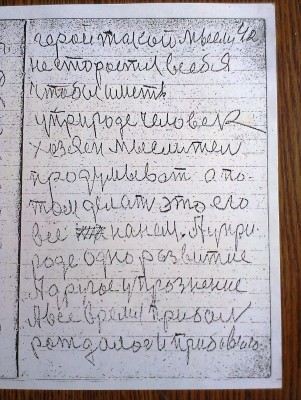 герой такой мысли Че
не сторости в себя
чтобы иметь
у природе человек
хозяен мыслител
продумыват а по
том делат это его
все нанем. А у при
роде одно развитие
А другое упрознение
А все время прибол
рождалось и прибовля